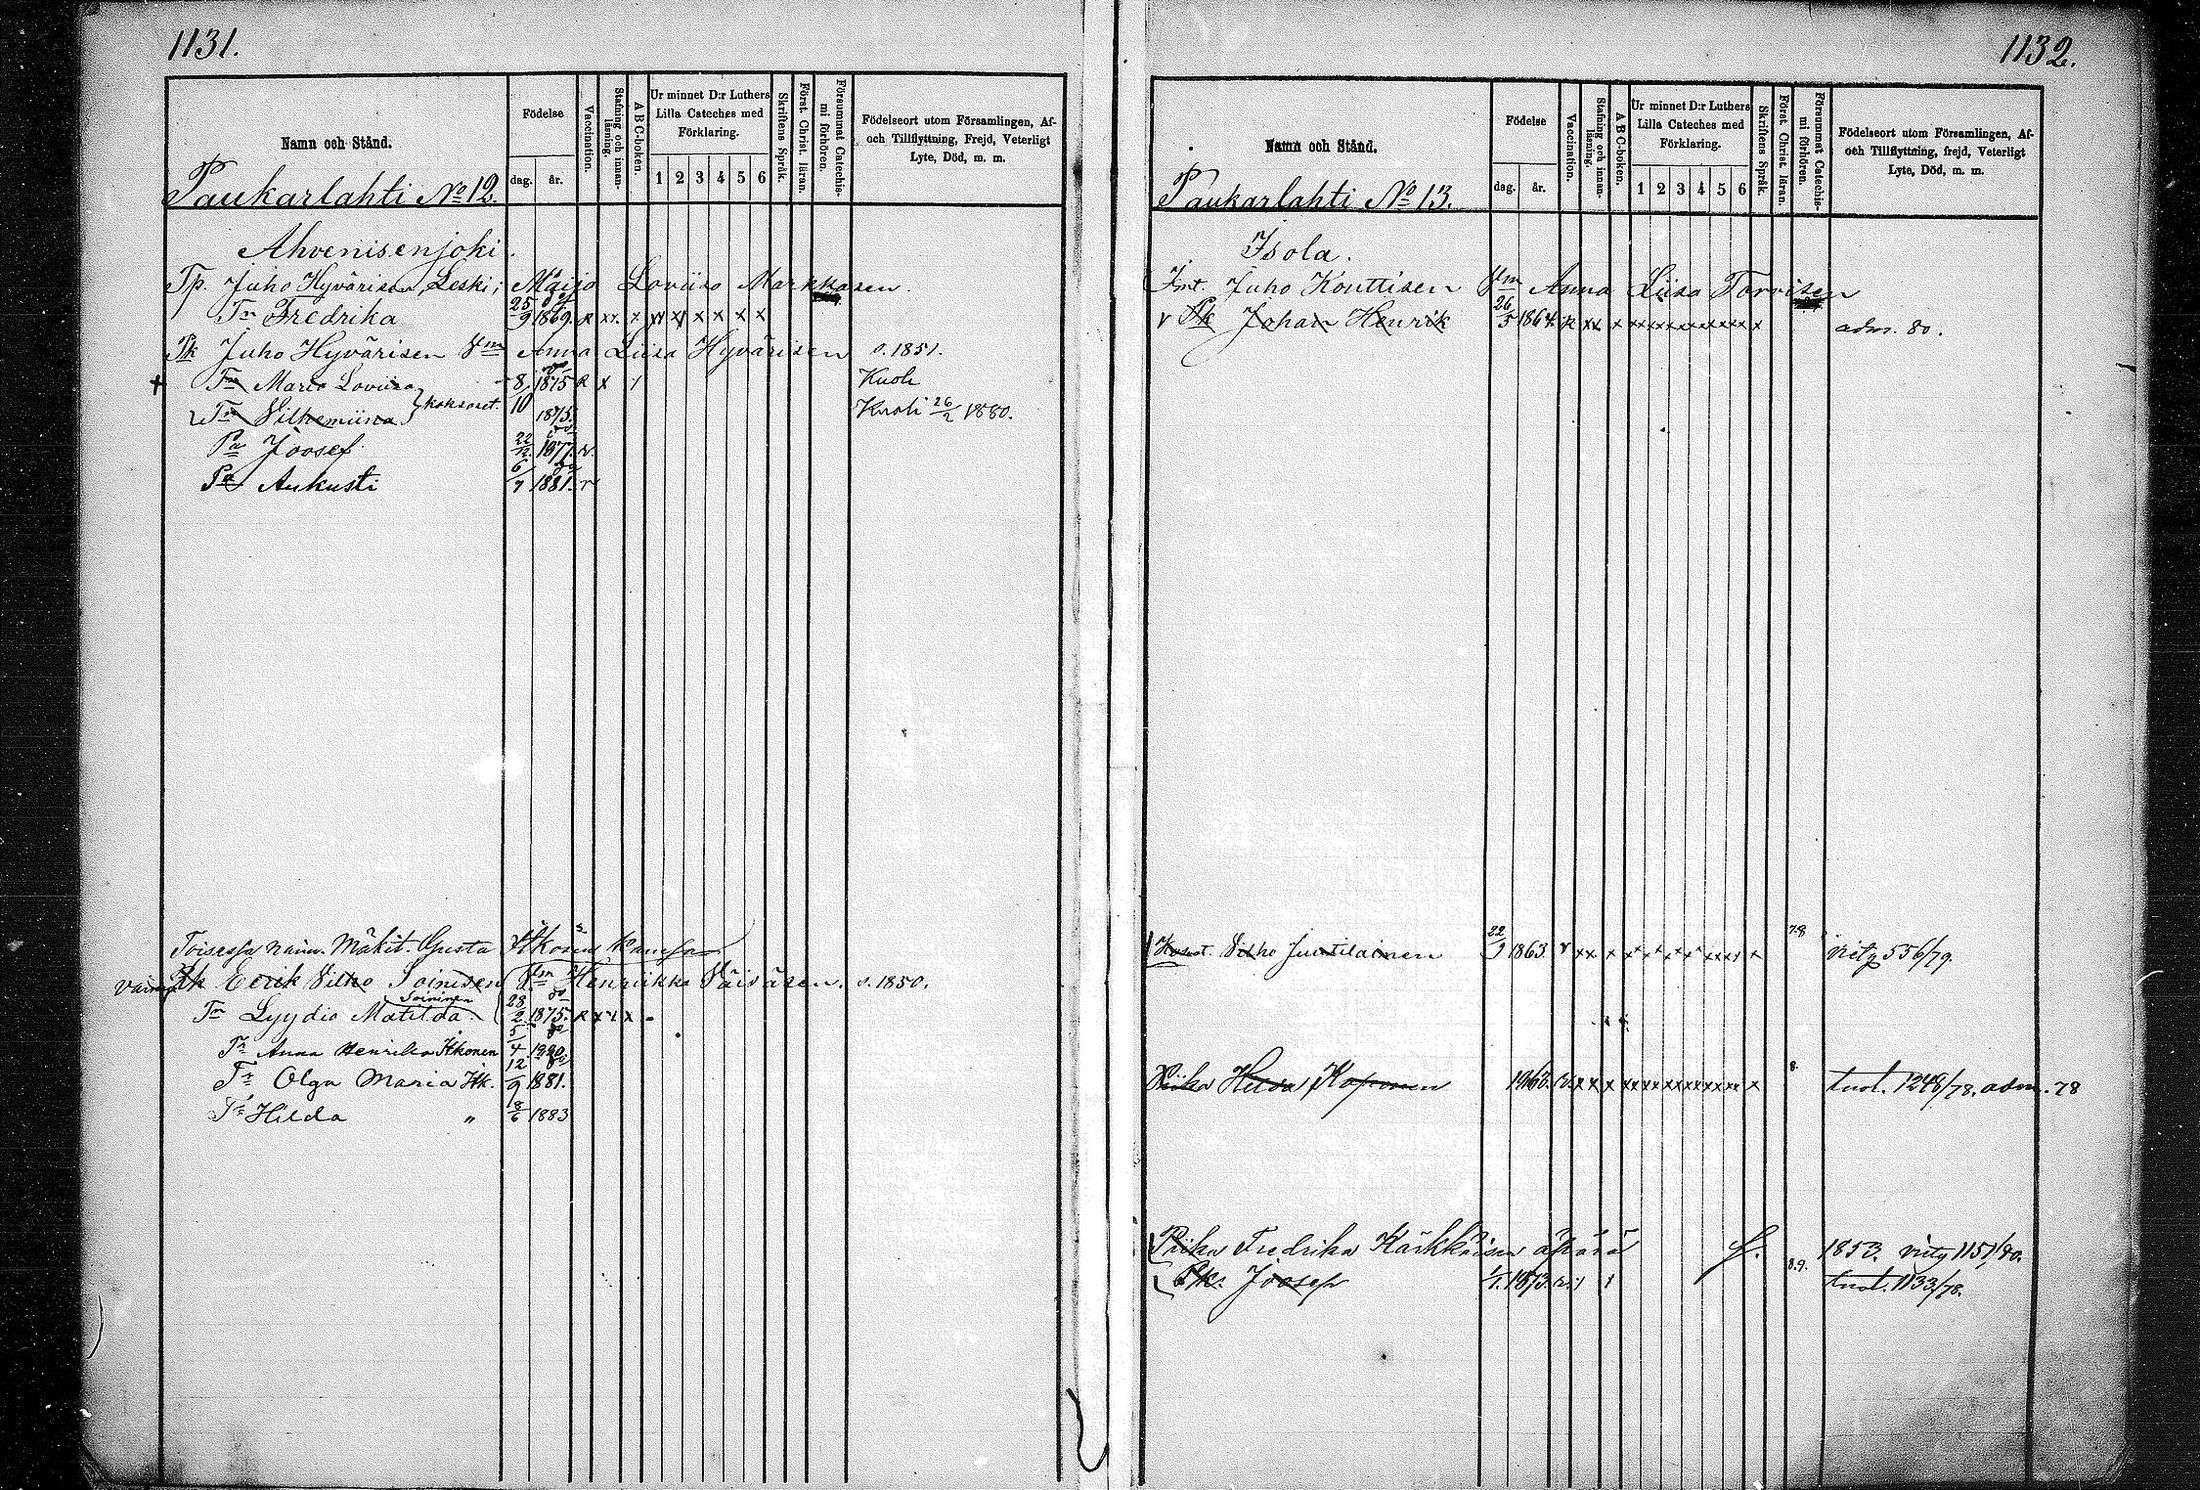 1131.
Namn och Stånd.
Födelse
dag. år.
Vaccination.
Stafning och innan-läsning.
ABC-boken.
Ur minnet D:r Luthers
Lilla Cateches med
Förklaring.
1 2 3 4 5 6
Skriftens Språk.
Först. Christ. läran.
Försummat Catechis-mi förhören.
Födelseort utom Församlingen, Af-
och Tillflyttning, Frejd, Veterligt
Lyte, Död, m. m.
Paukarlahti No 12.
Ahvenisenjoki.
Tp. Juho Hyvärisen, Leski; Maijo Loviisa Markkasen.
Tr Fredrika 25/9 1869. R xx x x x x x x x
Pk Juho Hyvärisen Vm Anna Liisa Hyvärisen s. 1851.
+ Tr Maria Loviisa 8/10 1875 R x / Kuoli
Tr Vilhemiina kaksoset. 1875. Kuoli 26/2 1880.
Pa Joosef 22/12 1877. v.
Pa Aukusti 6/7 1881. v
Toisessa naim. Mäkit. Gusta Itkosen kanssa
Pk Eerik Vilho Soinisen Vm Henriikka Väisäsen. s. 1850.
Soininen
Tr Lyydia Matilda 28/2 1875. R x x x
Tr Anna Henrika Itkonen 5/4
Tr Olga Maria Itk. 12/9 1881.
Tr Hilda „ 8/6 1883
1132.
Namn och Stånd.
Födelse
dag. år.
Vaccination.
Stafning och innan-läsning.
ABC-boken.
Ur minnet D:r Luthers
Lilla Cateches med
Förklaring.
1 2 3 4 5 6
Skriftens Språk.
Först. Christ. läran.
Försummat Catechis-mi förhören.
Födelseort utom Församlingen, Af-
och Tillflyttning, frejd, Veterligt
Lyte, Död, m. m.
Paukarlahti No 13.
Isola.
Juho Kouttisen Vm Anna Liisa Torvisen
v Pk Johan Henrik 26/5 1864. R xx x xxxxxxxxxx x adm. 80.
Vilho Juutilainen 22/9 1863. v xx x x x x x xxx x 78 556/79.
Piika Hilda Koponen xx x xxxxxxxxxx x 8. tust. 1248/78. adm. 78
Piika Fredrika Kärkkäisen äpärä 1853. 1151/80.
Pk. Joosep 1/1. 1873. 8.9. tust. 1133/78.